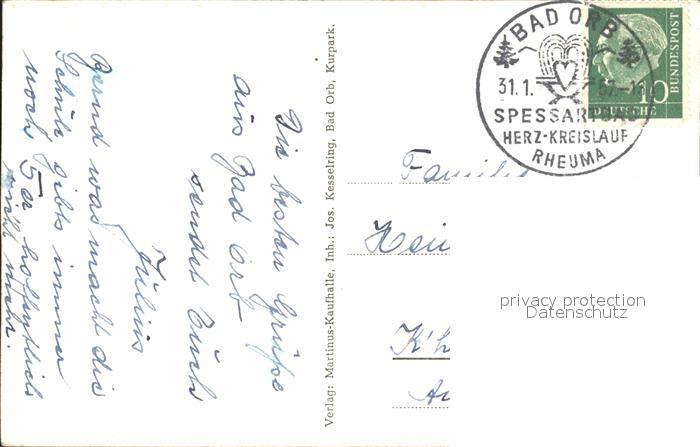 Die besten Grüße
aus Bad Orb
sendet Euch
Julius
Bernd was macht die
Schule gibts immer
noch 5 er hoffentlich
nicht mehr.
Verlag: Martinus-Kaufhalle, Inh.: Jos. Kesselring, Bad Orb, Kurpark.
BAD ORB
31.1.
SPESSARTBAD
HERZ-KREISLAUF
RHEUMA
10
DEUTSCHE
BUNDESPOST
Familie
Hei
K'h
privacy protection
Datenschutz